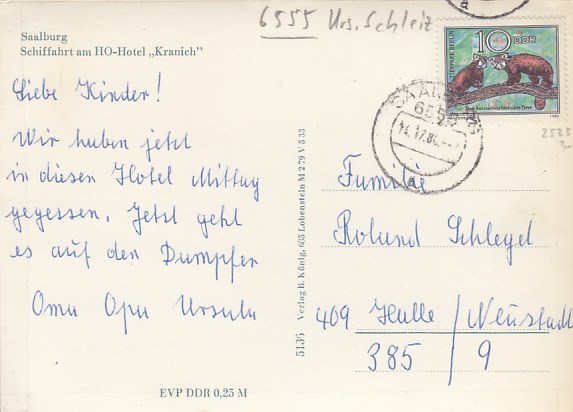 6555 Krs. Schleiz
Saalburg
Schiffahrt am HO-Hotel „Kranich"
Liebe Kinder!
Wir haben jetzt
in diesen Hotel Mittag
gegessen. Jetzt geht
es auf den Dampfer
Oma Opa Ursula
EVP DDR 0,25 M
5135 Verlag B. König, 685 Lobenstein M 279 V 5 33
TIERPARK BERLIN
10 DDR
SAALBURG
6555
14.12.
a
2525
Familie
Roland Schlegel
409 Halle / Neustadt
385 / 9